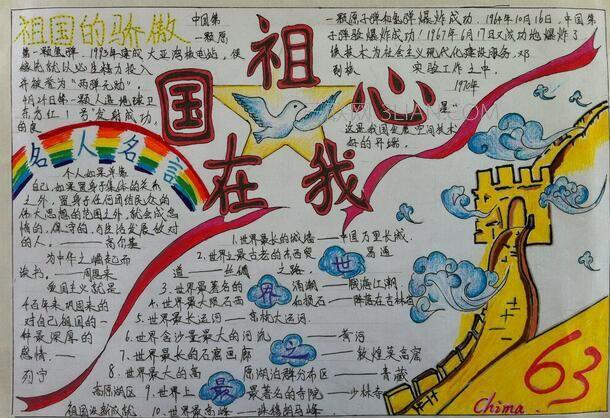 祖国的骄傲
中国第
一颗原
第一颗氢弹,1993年建成大亚湾核电站,使
投入
并被誉为"两弹元勋"。
4月24日第一颗人造地球卫
东方红1号"发射成功。
一颗原子弹和氢弹爆炸成功,1964年10月16日,中国第
子弹验爆炸成功!1967年6月17日又成功地爆炸了
该技术为社会主义现代化建设服务,邓
实验工作之中,
1970年
星"
空间技术
好的开端。
祖国在我心
名人名言
个人如果单靠
自己,如果置身于集体的关系
之外,置身于任何团结民众的
伟大思想的范围之外,就会成怠
惰的、保守的、与生活发展敌对
的人。——高尔基
为中华之崛起而
读书。——周恩来
爱国主义就是
千百年来巩固来的
对自己祖国的一
种最深厚的
感情。——
列宁
世界之最
1.世界最长的城墙——中国万里长城.
2.世界上最古老的东西贸易通
道——丝绸之路
3.世界最著名的涌潮——钱塘江潮.
4.世界最大陨石雨——陨落在吉林省
5.世界最长运河——京杭大运河.
6.世界含沙量最大的河流——黄河
7.世界最长的石窟画廊——敦煌莫高窟
8.世界最大的高原湖泊群分布区——青藏
高原湖区
9.世界上最著名的寺院——少林寺
10.世界最高峰——珠穆朗玛峰
祖国发新成就
63
Chima